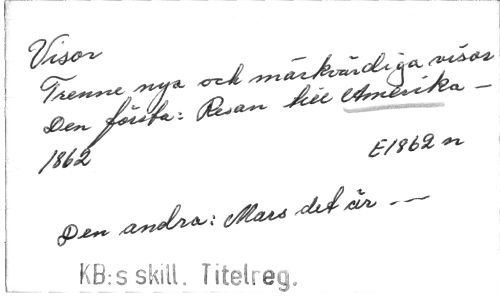 Visor
Trenne nya och märkvärdiga visor
Den första: Resan till Amerika —
1862
E1862 n
Den andra: Mars det är — —
KB:s skill. Titelreg.